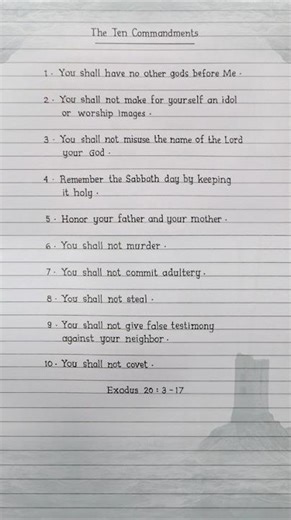 The Ten Commandments
1. You shall have no other gods before Me.
2. You shall not make for yourself an idol
or worship images.
3. You shall not misuse the name of the Lord
your God.
4. Remember the Sabbath day by keeping
it holy.
5. Honor your father and your mother.
6. You shall not murder.
7. You shall not commit adultery.
8. You shall not steal.
9. You shall not give false testimony
against your neighbor.
10. You shall not covet.
Exodus 20:3-17